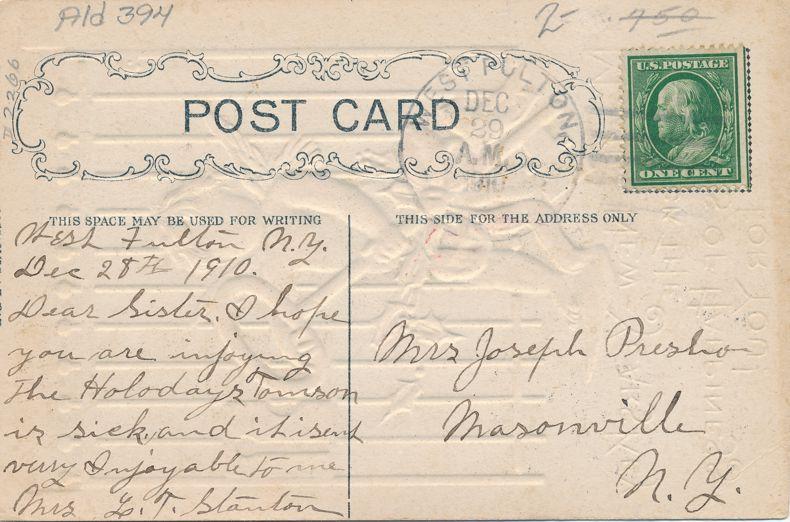 Ald 394
2- 450
# 2266
POST CARD
WEST FULTON
DEC
29
A.M.
1910
U.S. POSTAGE
ONE CENT
THIS SPACE MAY BE USED FOR WRITING
THIS SIDE FOR THE ADDRESS ONLY
West Fulton N.Y.
Dec 28th 1910.
Dear Sister. I hope
you are injoying
The Holodays Tomson
is sick, and it isent
very Injoyable to me
Mrs L. T. Stanton
Mrs Joseph Presho
Masonville
N. Y.